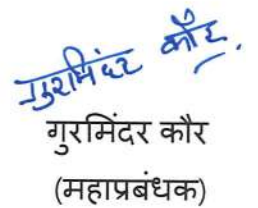 गुरमिंदर कौर
गुरमिंदर कौर
(महाप्रबंधक)